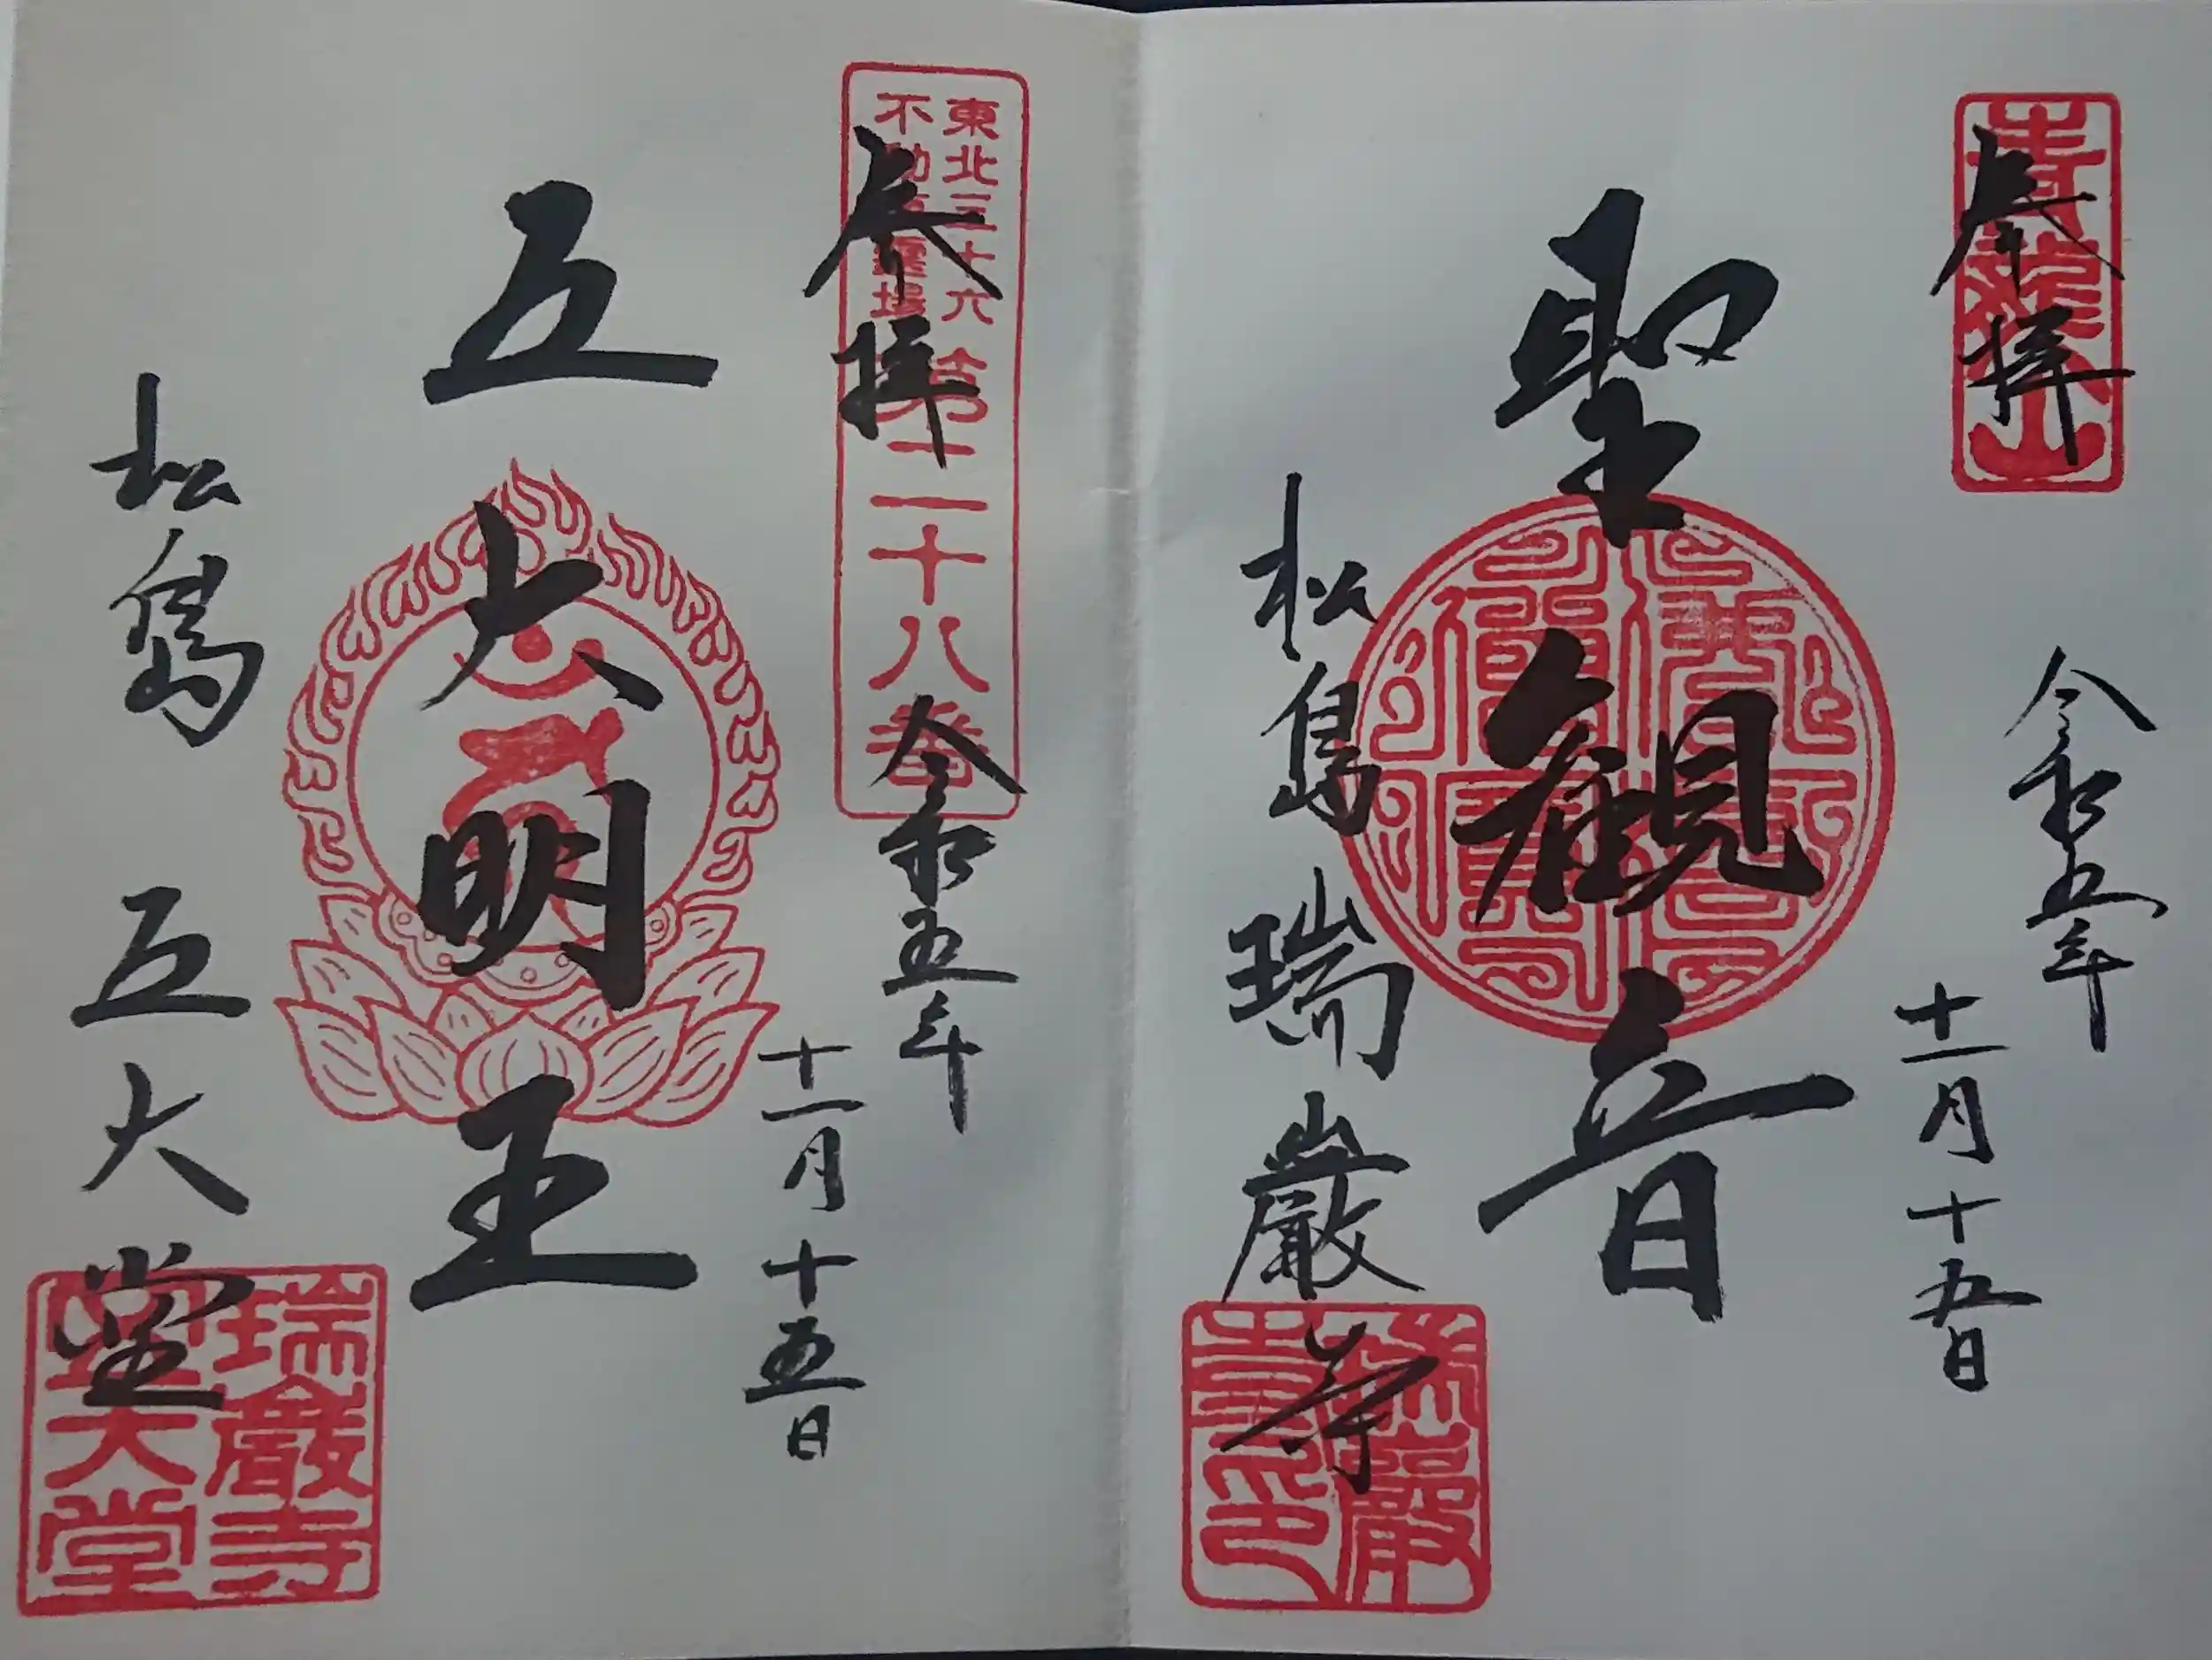 奉拝
青龍山
令和五年
十一月十五日
聖観音
松島瑞巌寺
瑞巌
寺印
奉拝
東北三十六
不動尊霊場
第二十八番
令和五年
十一月十五日
五大明王
松島 五大堂
瑞巌寺
五大堂